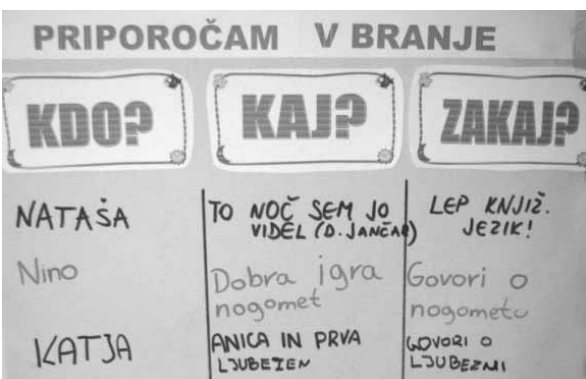 PRIPOROČAM V BRANJE
KDO? KAJ? ZAKAJ?
NATAŠA
TO NOČ SEM JO
VIDEL (D. JANČAR)
LEP KNJIŽ.
JEZIK!
Nino
Dobra igra
nogomet
Govori o
nogometu
KATJA
ANICA IN PRVA
LJUBEZEN
GOVORI O
LJUBEZNI